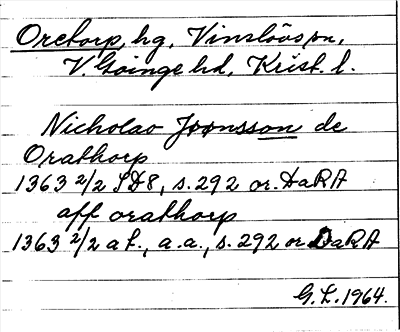 Oretorp, hg, Vinslövs sn,
V. Göinge hd, Krist. l.
Nicholao Joonsson de
Orathorp
1363 2/2 SD8, s. 292 or. DaRA
aff orathorp
1363 2/2 a f., a.a., s. 292 or. DaRA
G. L. 1964.